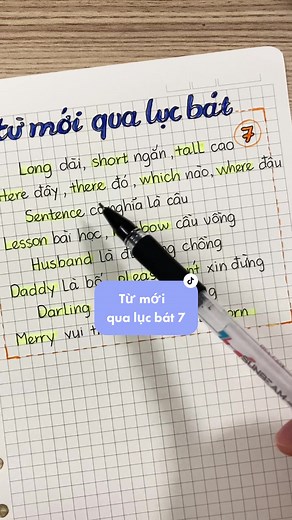 từ mới qua lục bát
7
Long dài, short ngắn, tall cao
Here đây, there đó, which nào, where đâu
Sentence có nghĩa là câu
Lesson bài học, cầu vồng
Husband là chồng
Daddy là bố, xin đừng
Darling
Merry vui
Từ mới
qua lục bát 7
SUNBEAM